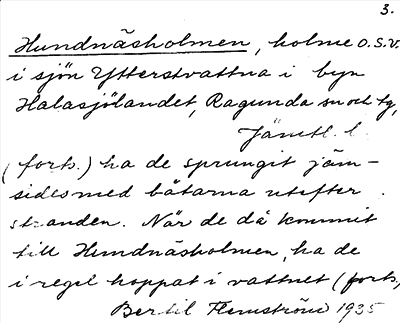 3.
Hundnäsholmen, holme o.s.v.
i sjön Ytterstvattna i byn
Halasjölandet, Ragunda sn och tg,
Jämtl. l.
(forts.) ha de sprungit jäm-
sides med båtarna utefter
stranden. När de då kommit
till Hundnäsholmen, ha de
i regel hoppat i vattnet (forts,
Bertil Flemström 1935